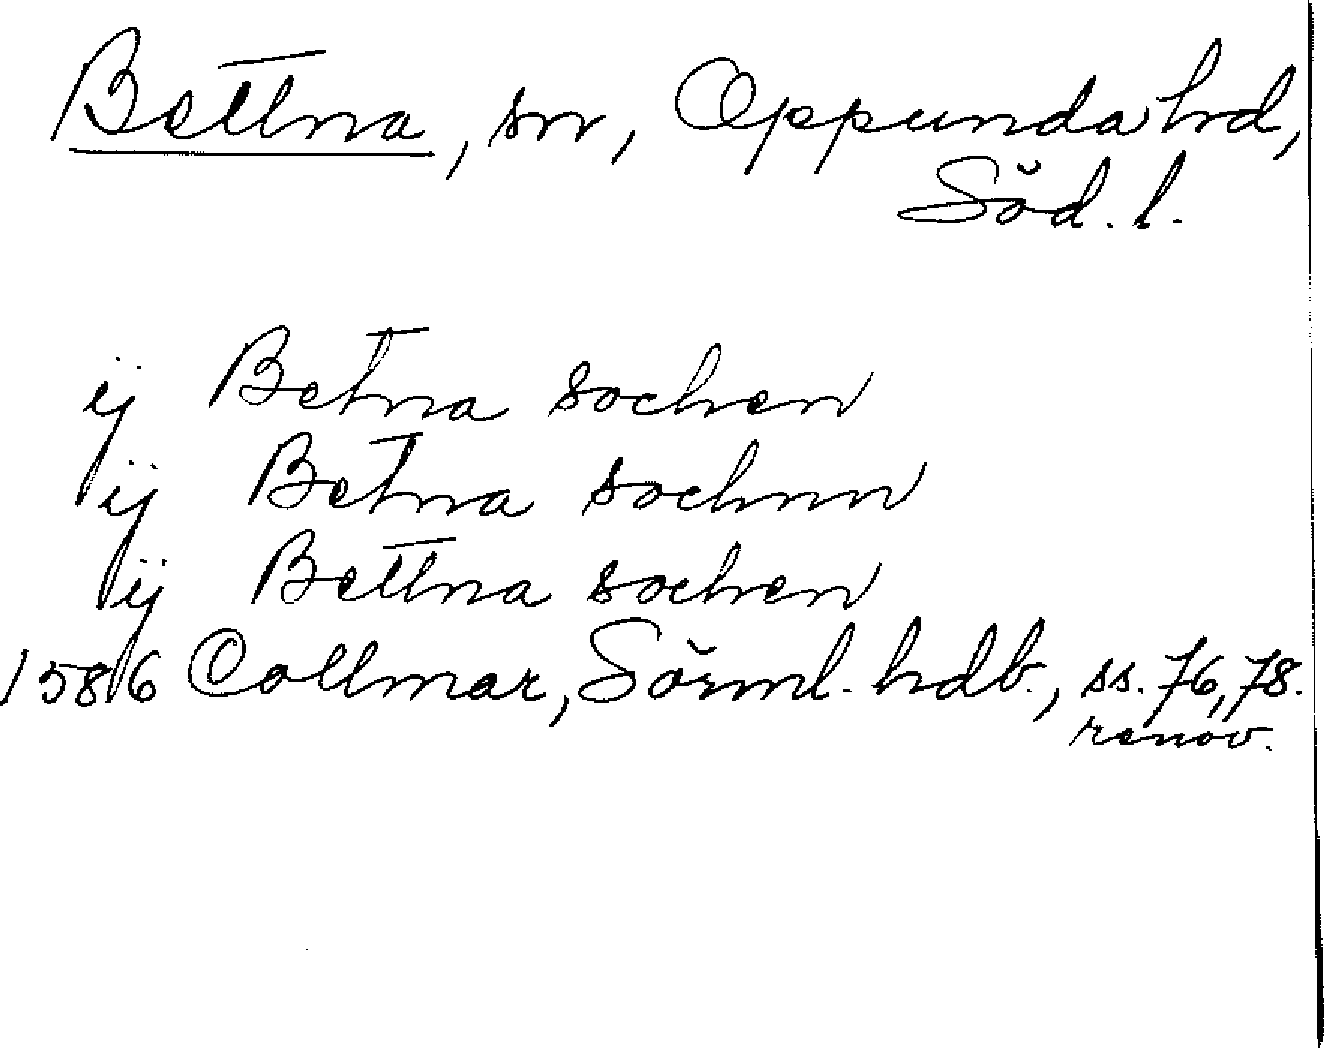 Bettna, sn, Oppunda hd,
Söd. l.
ij Betna sochen
ij Betna sochnn
ij Bettna sochen
1586 Collmar, Sörml. hdb., ss. 76, 78.
renov.